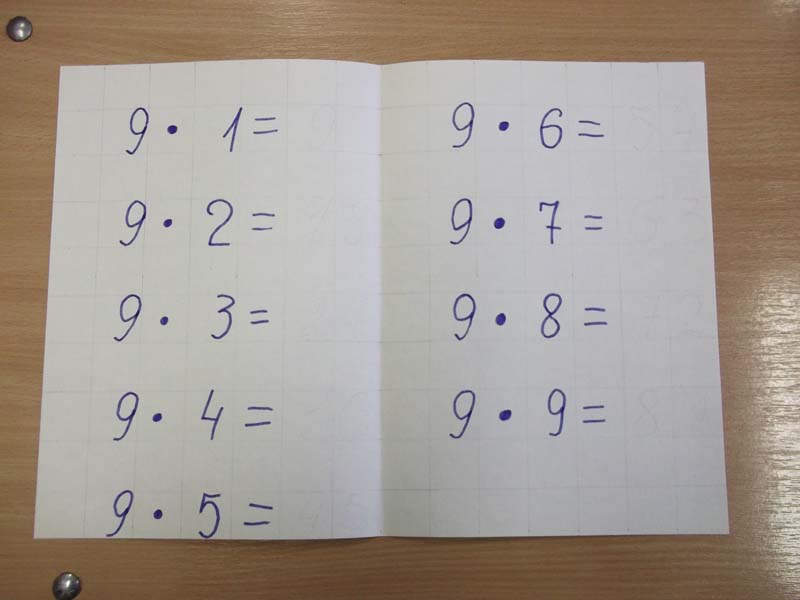 9 · 1 =
9 · 2 =
9 · 3 =
9 · 4 =
9 · 5 =
9 · 6 =
9 · 7 =
9 · 8 =
9 · 9 =